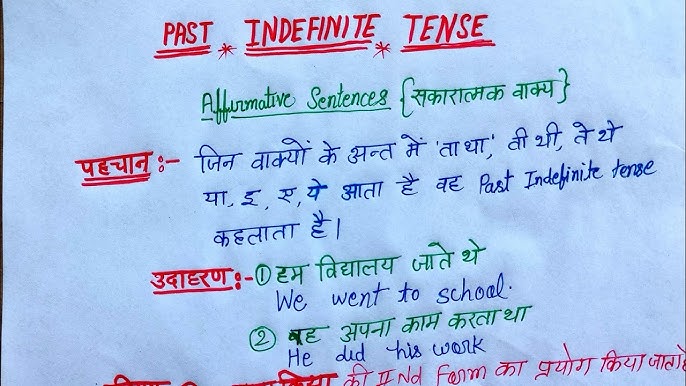 PAST * INDEFINITE * TENSE
Affirmative Sentences {सकारात्मक वाक्य}
पहचान :- जिन वाक्यों के अन्त में 'ता था,' ती थी, ते थे
या, इ, ए, ये आता है वह Past Indefinite tense
कहलाता है।
उदाहरण:- ① हम विद्यालय जाते थे
We went to school.
② वह अपना काम करता था
He did his work
की IInd Form का प्रयोग किया जाता है